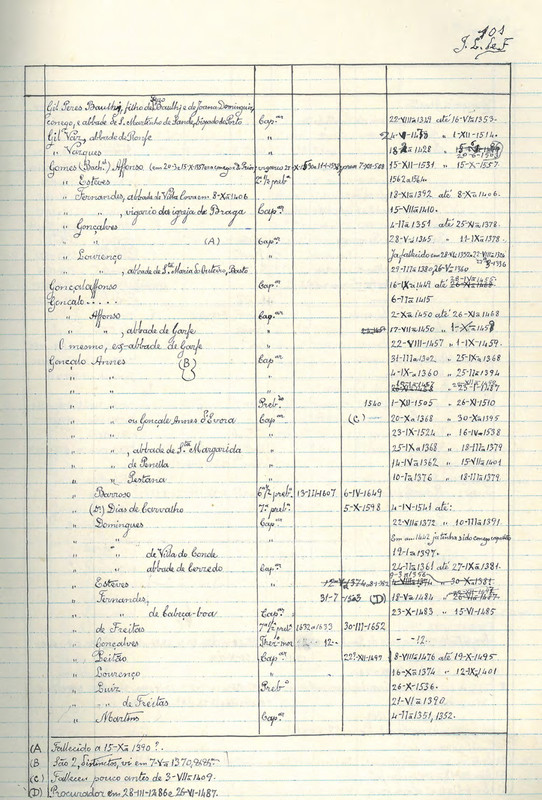 101
J. L. de F.
Gil Peres Baulhj, filho de Baulhj e de Joana Domingues,
conego, e abbade de S. Martinho de Sande, bispado do Porto Cap.ar 22-VIII-1349 até 16-V-1353.
Gil Vaz, abbade de Ronfe " " 1-XII-1514.
" Vasques " 18-X-1428 "
Gomes (Bach.el) Affonso 15-XII-1531 " 15-X-1557
" Estêves 1562 a 1564
" Fernandes, abbade de Villa Cova em 8-X-1406 18-IX-1392 até 8-X-1406.
" " , vigario da igreja de Braga Cap.ar 15-VII-1410.
" Gonçalves 4-II-1351 até 25-X-1378.
" " (A) Cap.ar 28-V-1365 " 11-IX-1378
" Lourenço
" " , abbade de S.ta Maria do Outeiro, Basto 29-III-1380, 26-V-1360
Gonçal'affonso Cap.ar 16-IX-1449 até
Gonçalo..... 6-II-1415
" Affonso Cap.ar 2-X-1450 até 26-X-1468
" " , abbade de Garfe " 17-VII-1450 "
O mesmo, ex-abbade de Garfe 22-VIII-1457 " 1-IX-1459.
Gonçalo Annes (B) Cap.ar 31-III-1302 " 25-IX-1368
" " " 4-IX-1360 " 25-II-1394
" " "
" " Preb.do 1540 1-XII-1505 " 26-XI-1510
" " ou Gonçale Annes d'Evora Cap.ar (C) 20-X-1368 " 30-X-1395
" " " 23-IX-1524 " 16-IV-1538
" " , abbade de S.ta Margarida " 25-IX-1368 " 18-III-1379
" " de Penella " 14-IV-1362 " 15-VII-1401
" " Pestana " 10-I-1376 " 18-III-1379
" Barroso 6.º ½ preb.º 13-III-1607. 6-IV-1649
" (D.r) Dias de Carvalho 7.ª preb. 5-X-1598 4-IV-1541 até:
" Domingues Cap.ar 22-VII-1372 " 10-III-1391
" " " Em 1442 ja tinha sido conego
" " de Villa do Conde 19-I-1397.
" " abbade de Borredo Cap.ar 24-II-1361 até 27-IX-1381.
" Estêves " " 30-X-1381
" Fernandes, " 31-7-1523 (D) 18-V-1484 "
" " de Cabeça-boa Cap.ar 23-X-1483 " 15-VI-1485
" de Freitas 7.º ½ preb. 1632 a 1633 30-III-1652
" Gonçalves Thes.ro mor - -12- - -12.
" Leitão Cap.ar 22?-XII-1499 8-VIII-1476 até 19-X-1495
" Lourenço " 16-X-1374 " 12-IX-1401
" Luiz Preb.º 26-X-1536.
" " de Freitas 21-VI-1390
" Martins Cap.ar 4-II-1351, 1352.
(A) Fallecido a 15-X-1390?.
(B) São 2, distinctos, vi em 7-V-1370,
(C) Falleceu pouco antes de 3-VII-1409.
(D) Procurador em 28-III-1486 e 26-VI-1487.